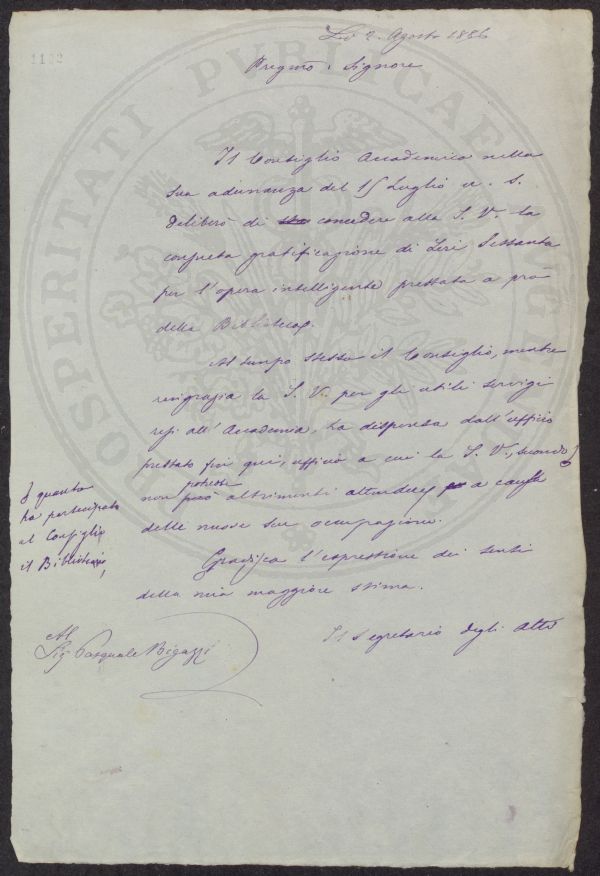 1122
Lì 2. Agosto 1886
Pregmo. Signore
Il Consiglio Accademico nella
sua adunanza del 15 Luglio u. s.
deliberò di concedere alla S. V. la
consueta gratificazione di Lire Sessanta
per l'opera intelligente prestata a prò
della Biblioteca.
Al tempo stesso il Consiglio, mentre
ringrazia la S. V. per gli utili servigi
resi all'Accademia, ha dispensa dall'ufficio
prestato fin qui, ufficio a cui la S. V., secondo
non può potesse altrimenti attendere a causa
delle nuove sue occupazioni.
Gradisca l'espressione dei sensi
della mia maggiore stima.
Il Segretario degli Atti
Al
Sig. Pasquale Bigazzi
quanto
ha partecipato
al Consiglio
il Bibliotecario,
PROSPERITATI PVBLICAE AVG